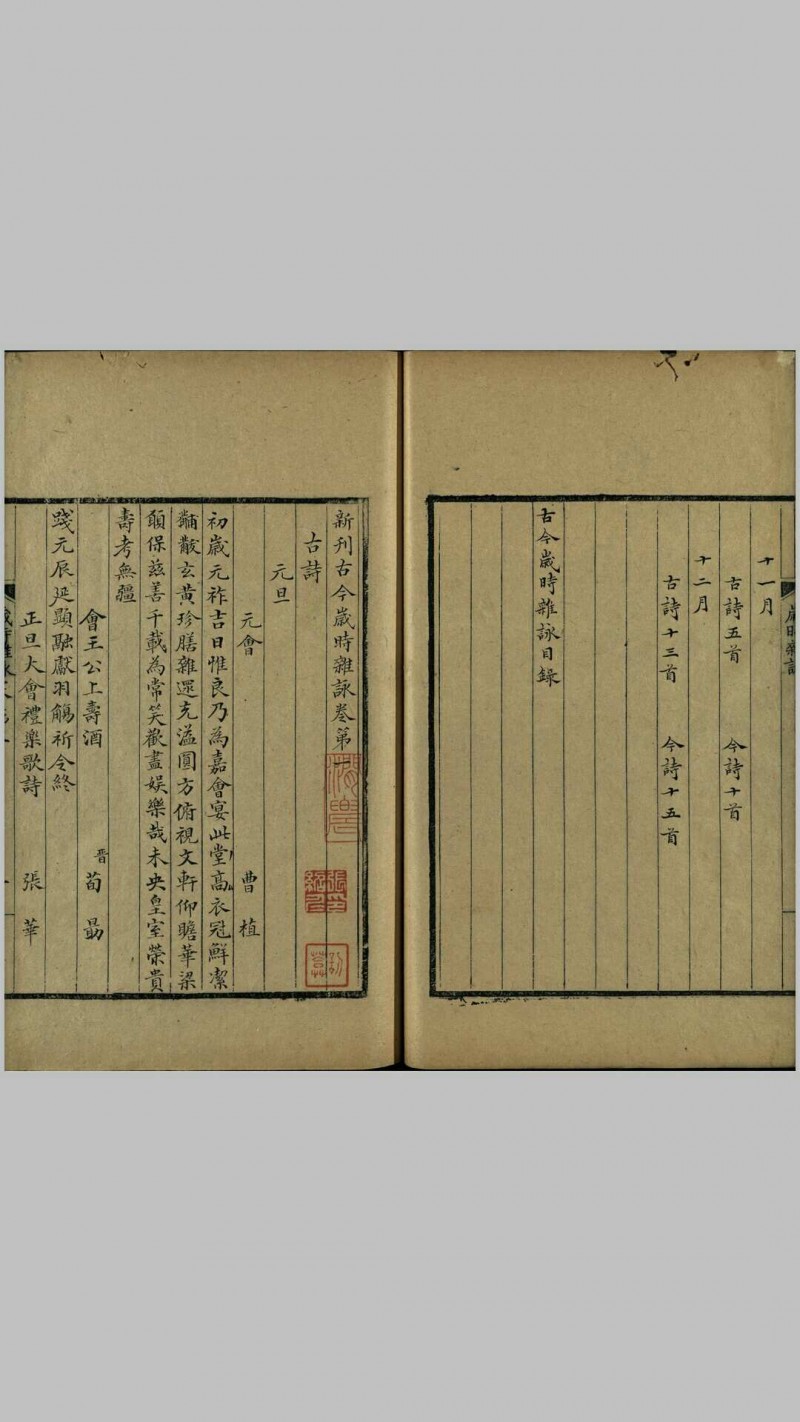 十一月
古詩五首 今詩十首
十二月
古詩十三首 今詩十五首
古今歲時雜詠目錄
新刊古今歲時雜詠卷第一
古詩
元旦
元會 曹植
初歲元祚吉日惟良乃為嘉會宴此堂高衣冠鮮潔
黼黻玄黃珍膳雜遝充溢圓方俯視文軒仰瞻華梁
願保茲善千載為常笑歡盡娛樂哉未央皇室榮貴
壽考無疆
會王公上壽酒 晉荀勗
踐元辰延顯融獻羽觴祈令終
正旦大會禮樂歌詩 張華